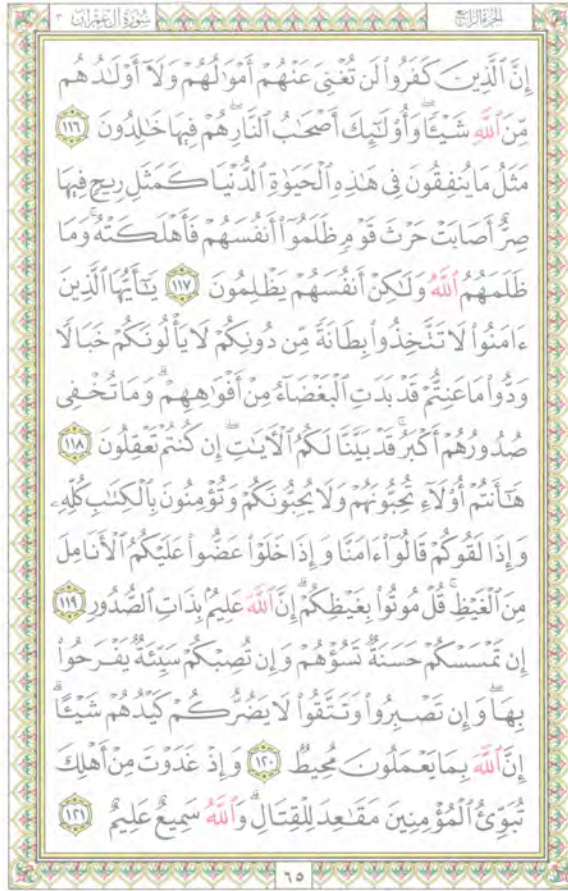 سُورَةُ آلِ عِمْرَانَ ٣
الجزء الرابع
إِنَّ ٱلَّذِينَ كَفَرُوا۟ لَن تُغْنِىَ عَنْهُمْ أَمْوَٰلُهُمْ وَلَآ أَوْلَٰدُهُم
مِّنَ ٱللَّهِ شَيْـًٔا ۖ وَأُو۟لَٰٓئِكَ أَصْحَٰبُ ٱلنَّارِ ۖ هُمْ فِيهَا خَٰلِدُونَ ١١٦
مَثَلُ مَا يُنفِقُونَ فِى هَٰذِهِ ٱلْحَيَوٰةِ ٱلدُّنْيَا كَمَثَلِ رِيحٍ فِيهَا
صِرٌّ أَصَابَتْ حَرْثَ قَوْمٍ ظَلَمُوٓا۟ أَنفُسَهُمْ فَأَهْلَكَتْهُ ۚ وَمَا
ظَلَمَهُمُ ٱللَّهُ وَلَٰكِنْ أَنفُسَهُمْ يَظْلِمُونَ ١١٧ يَٰٓأَيُّهَا ٱلَّذِينَ
ءَامَنُوا۟ لَا تَتَّخِذُوا۟ بِطَانَةً مِّن دُونِكُمْ لَا يَأْلُونَكُمْ خَبَالًا
وَدُّوا۟ مَا عَنِتُّمْ قَدْ بَدَتِ ٱلْبَغْضَآءُ مِنْ أَفْوَٰهِهِمْ ۚ وَمَا تُخْفِى
صُدُورُهُمْ أَكْبَرُ ۚ قَدْ بَيَّنَّا لَكُمُ ٱلْءَايَٰتِ ۖ إِن كُنتُمْ تَعْقِلُونَ ١١٨
هَٰٓأَنتُمْ أُو۟لَآءِ تُحِبُّونَهُمْ وَلَا يُحِبُّونَكُمْ وَتُؤْمِنُونَ بِٱلْكِتَٰبِ كُلِّهِۦ
وَإِذَا لَقُوكُمْ قَالُوٓا۟ ءَامَنَّا وَإِذَا خَلَوْا۟ عَضُّوا۟ عَلَيْكُمُ ٱلْأَنَامِلَ
مِنَ ٱلْغَيْظِ ۚ قُلْ مُوتُوا۟ بِغَيْظِكُمْ ۗ إِنَّ ٱللَّهَ عَلِيمٌۢ بِذَاتِ ٱلصُّدُورِ ١١٩
إِن تَمْسَسْكُمْ حَسَنَةٌ تَسُؤْهُمْ وَإِن تُصِبْكُمْ سَيِّئَةٌ يَفْرَحُوا۟
بِهَا ۖ وَإِن تَصْبِرُوا۟ وَتَتَّقُوا۟ لَا يَضُرُّكُمْ كَيْدُهُمْ شَيْـًٔا ۗ
إِنَّ ٱللَّهَ بِمَا يَعْمَلُونَ مُحِيطٌ ١٢٠ وَإِذْ غَدَوْتَ مِنْ أَهْلِكَ
تُبَوِّئُ ٱلْمُؤْمِنِينَ مَقَٰعِدَ لِلْقِتَالِ ۗ وَٱللَّهُ سَمِيعٌ عَلِيمٌ ١٢١
٦٥